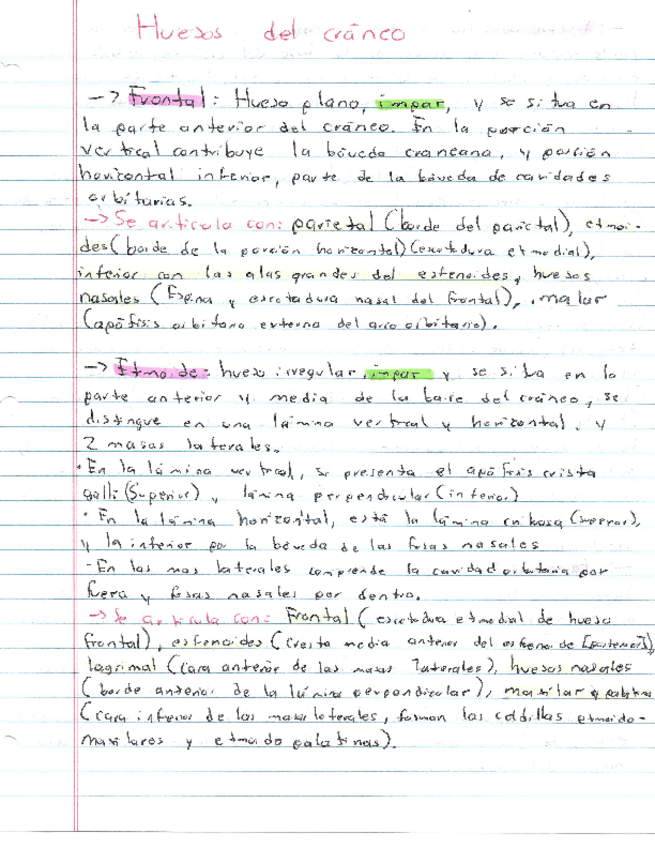 Huesos del cráneo
-> Frontal: Hueso plano, impar, y se situa en
la parte anterior del cráneo. En la porción
vertical contribuye la bóveda craneana, y porción
horizontal inferior, parte de la bóveda de cavidades
orbitarias.
-> Se articula con: parietal (borde del parietal), etmoi-
des (borde de la porción horizontal) (escotadura etmodial),
inferior con las alas grandes del esfenoides, huesos
nasales (Espina y escotadura nasal del frontal), malar
(apófisis orbitaria externa del arco orbitario).
-> Etmoide: hueso irregular, impar y se situa en la
parte anterior y media de la base del cráneo, se
distingue en una lámina vertical y horizontal, y
2 masas laterales.
· En la lámina vertical, se presenta el apófisis crista
galli (Superior) y lámina perpendicular (inferior)
· En la lámina horizontal, está la lámina cribosa (superior),
y la inferior por la bóveda de las fosas nasales
- En las mas laterales comprende la cavidad orbitaria por
fuera y fosas nasales por dentro.
-> Se articula con: Frontal (escotadura etmodial de hueso
frontal), esfenoides (cresta media anterior del esfenoide [posterior]),
lagrimal (cara anterior de las masas laterales), huesos nasales
(borde anterior de la lámina perpendicular), maxilar y palatino
(cara inferior de las masas laterales, forman las celdillas etmoido-
maxilares y etmoido palatinas).